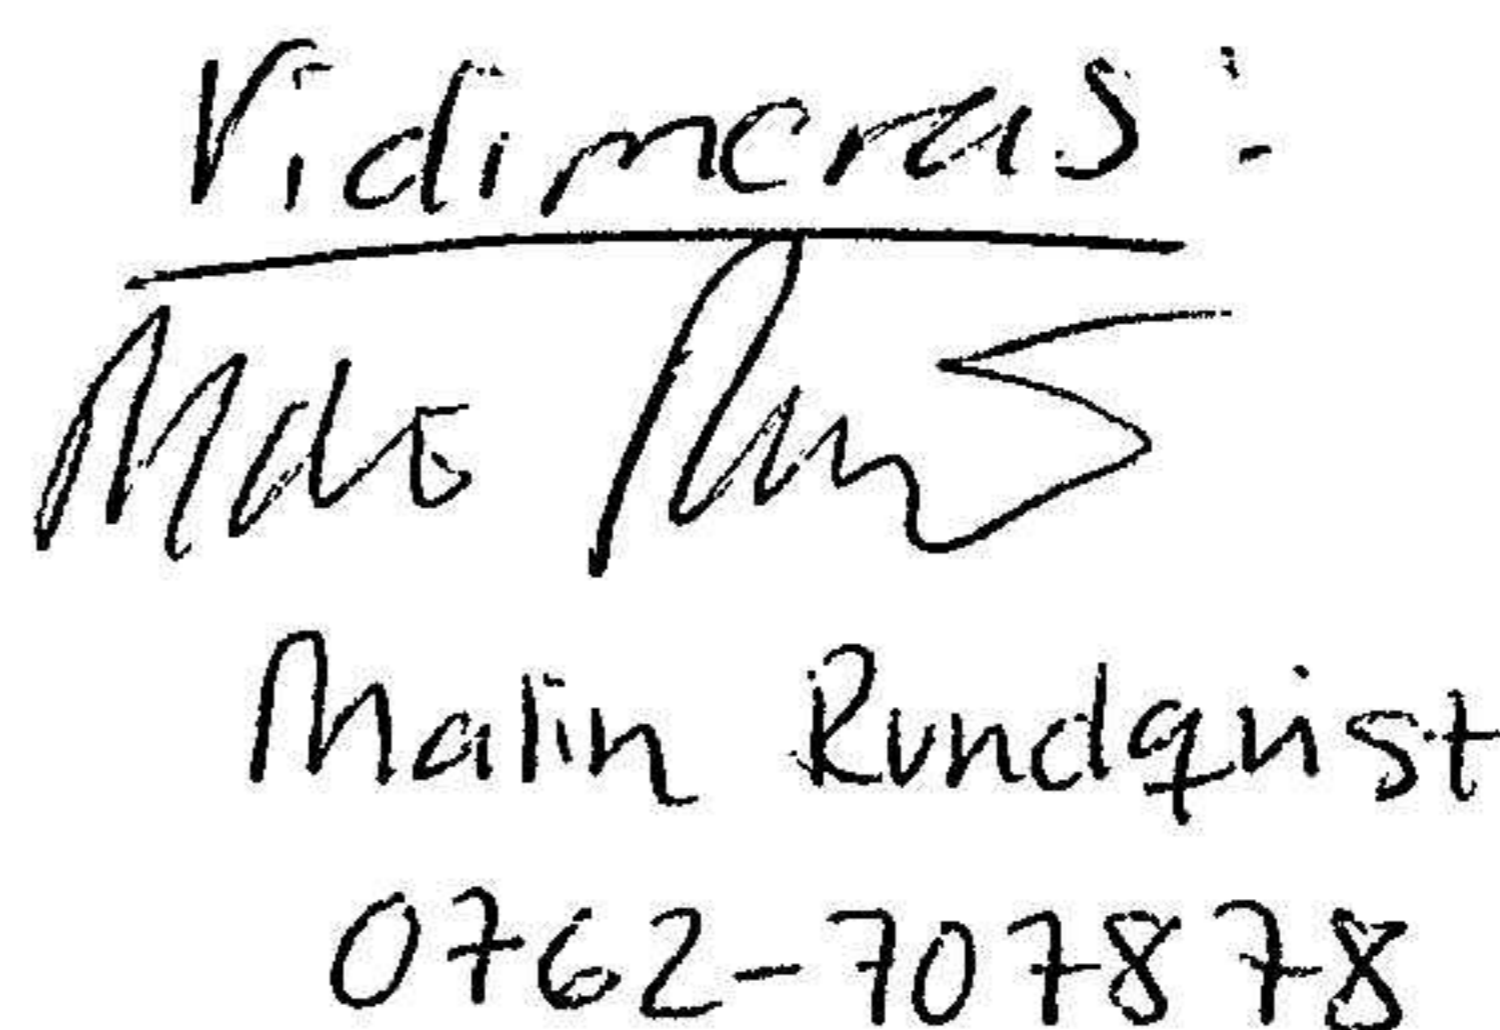 Vidimeras:
Malin Rundqvist
0762-707878